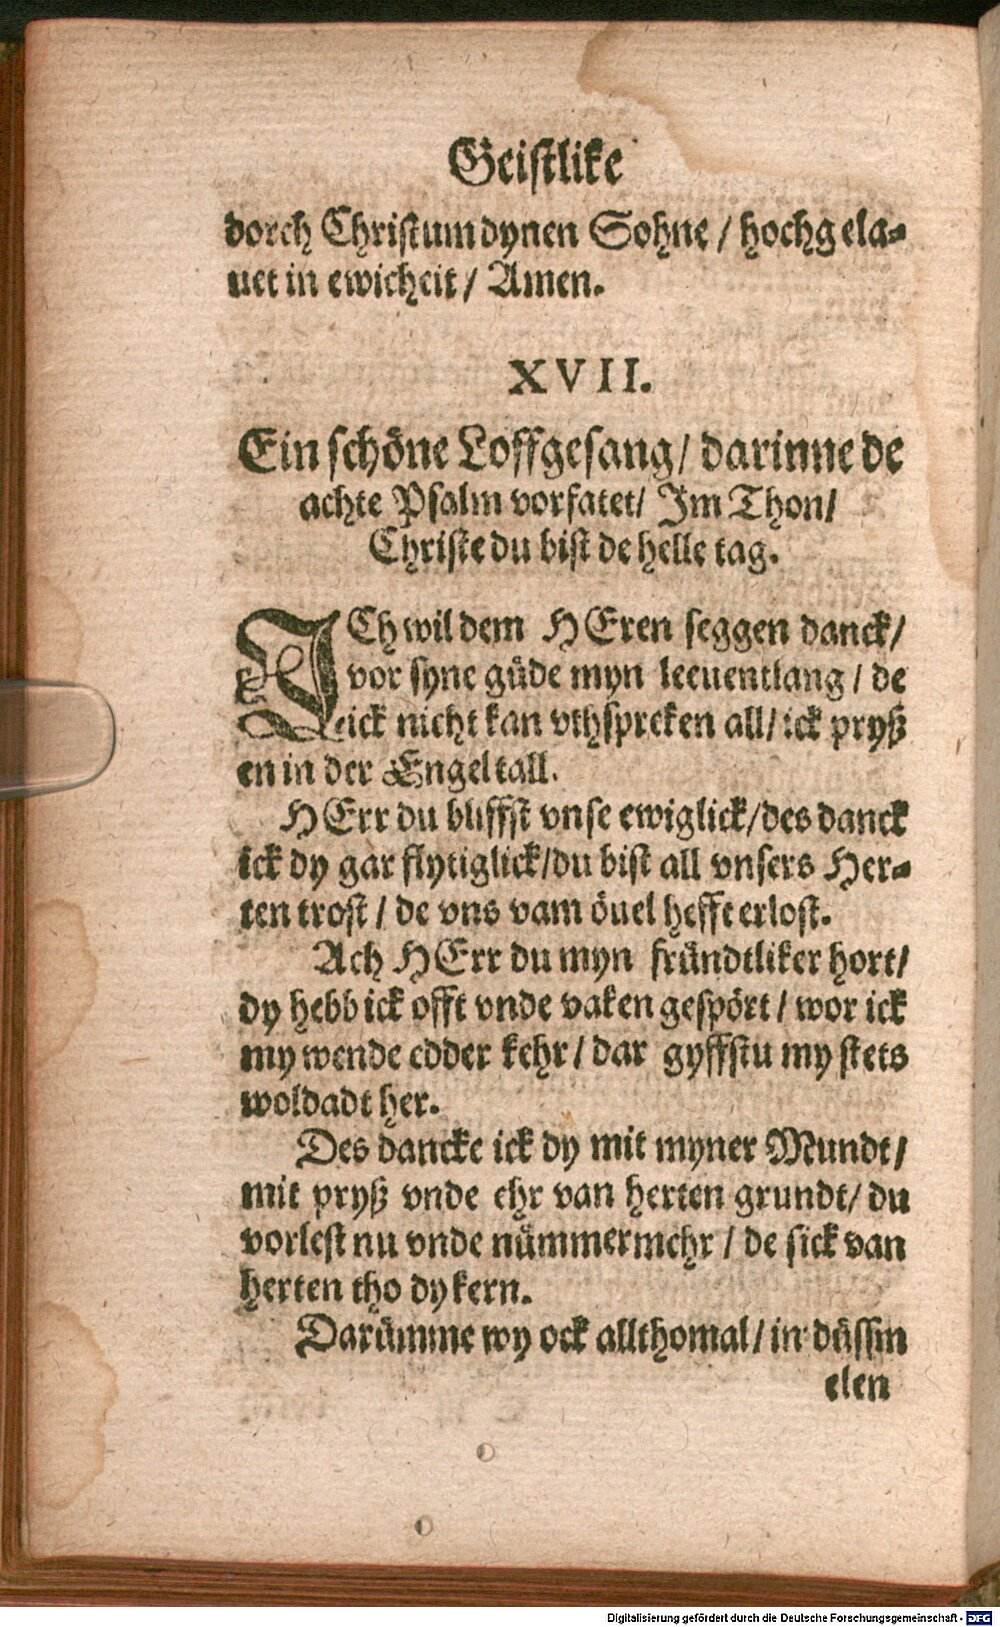 Geistlike
dorch Christum dynen Sohne / hochgela-
uet in ewicheit / Amen.
XVII.
Ein schöne Loffgesang / darinne de
achte Psalm vorfatet / Im Thon /
Christe du bist de helle tag.
ICh wil dem HEren seggen danck /
vor syne güde myn leeuentlang / de
ick nicht kan vthspreken all / ick pryß
en in der Engel tall.
HErr du bliffst vnse ewiglick / des danck
ick dy gar flytiglick / du bist all vnsers Her-
ten trost / de vns vam öuel hefft erlost.
Ach HErr du myn fründtliker hort /
dy hebb ick offt vnde vaken gespört / wor ick
my wende edder kehr / dar gyffstu my stets
woldadt her.
Des dancke ick dy mit myner Mundt /
mit pryß vnde ehr van herten grundt / du
vorlest nu vnde nümmermehr / de sick van
herten tho dy kern.
Darümme wy ock allthomal / in düssm
elen
Digitalisierung gefördert durch die Deutsche Forschungsgemeinschaft - DFG